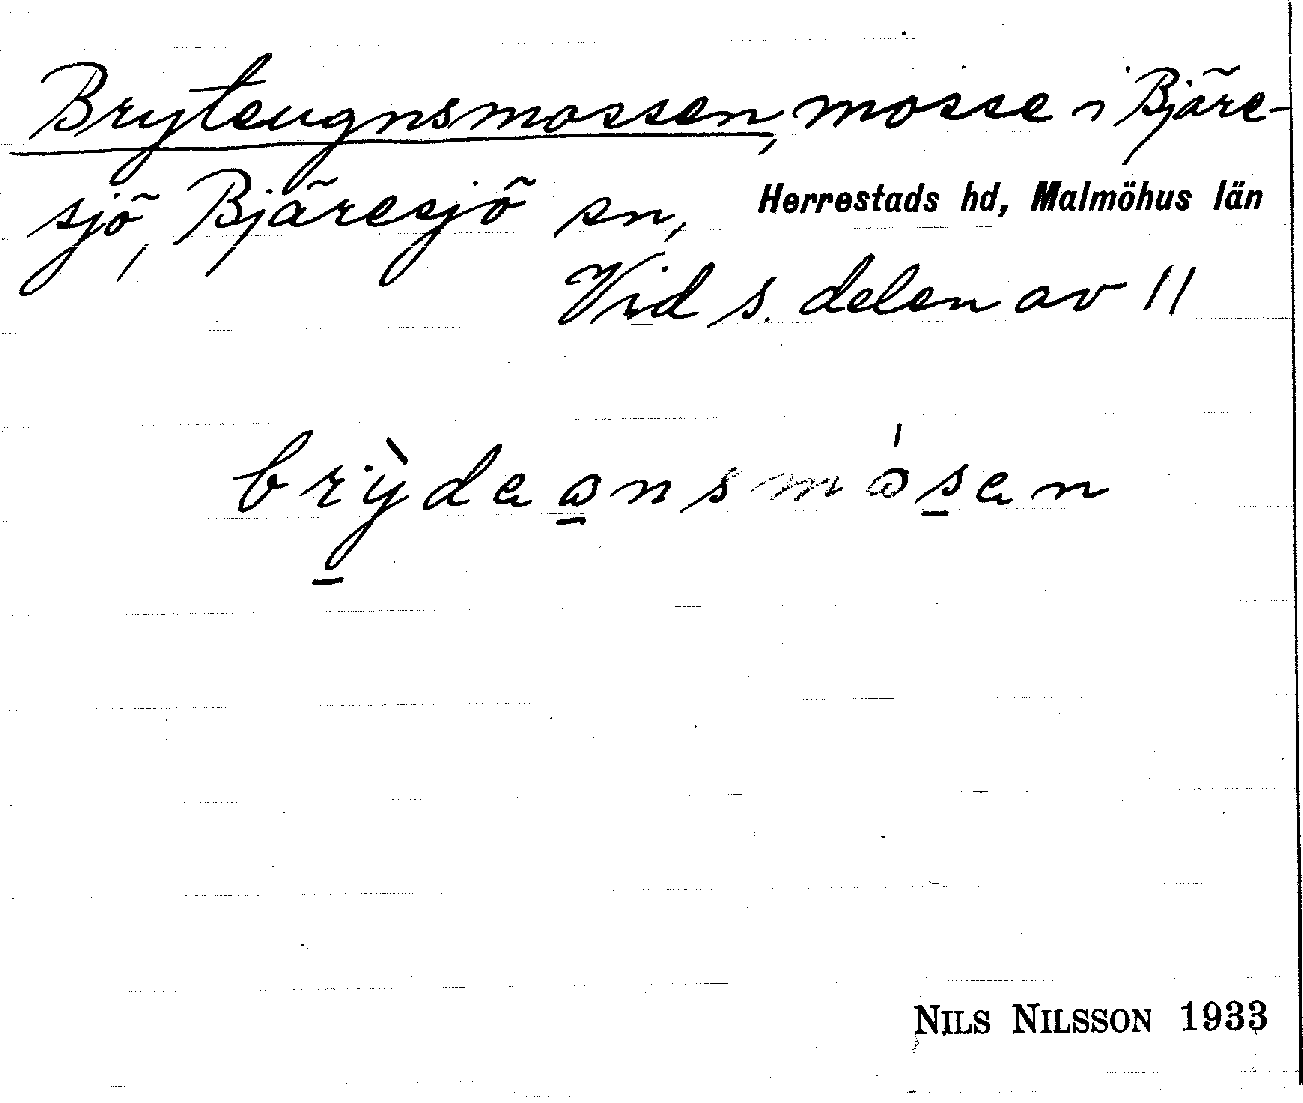 Bryteugnsmossen, mosse i Bjäre-
sjö, Bjäresjö sn, Herrestads hd, Malmöhus län
Vid s. delen av 11
brỳdeo̲nsmós̲en
NILS NILSSON 1933